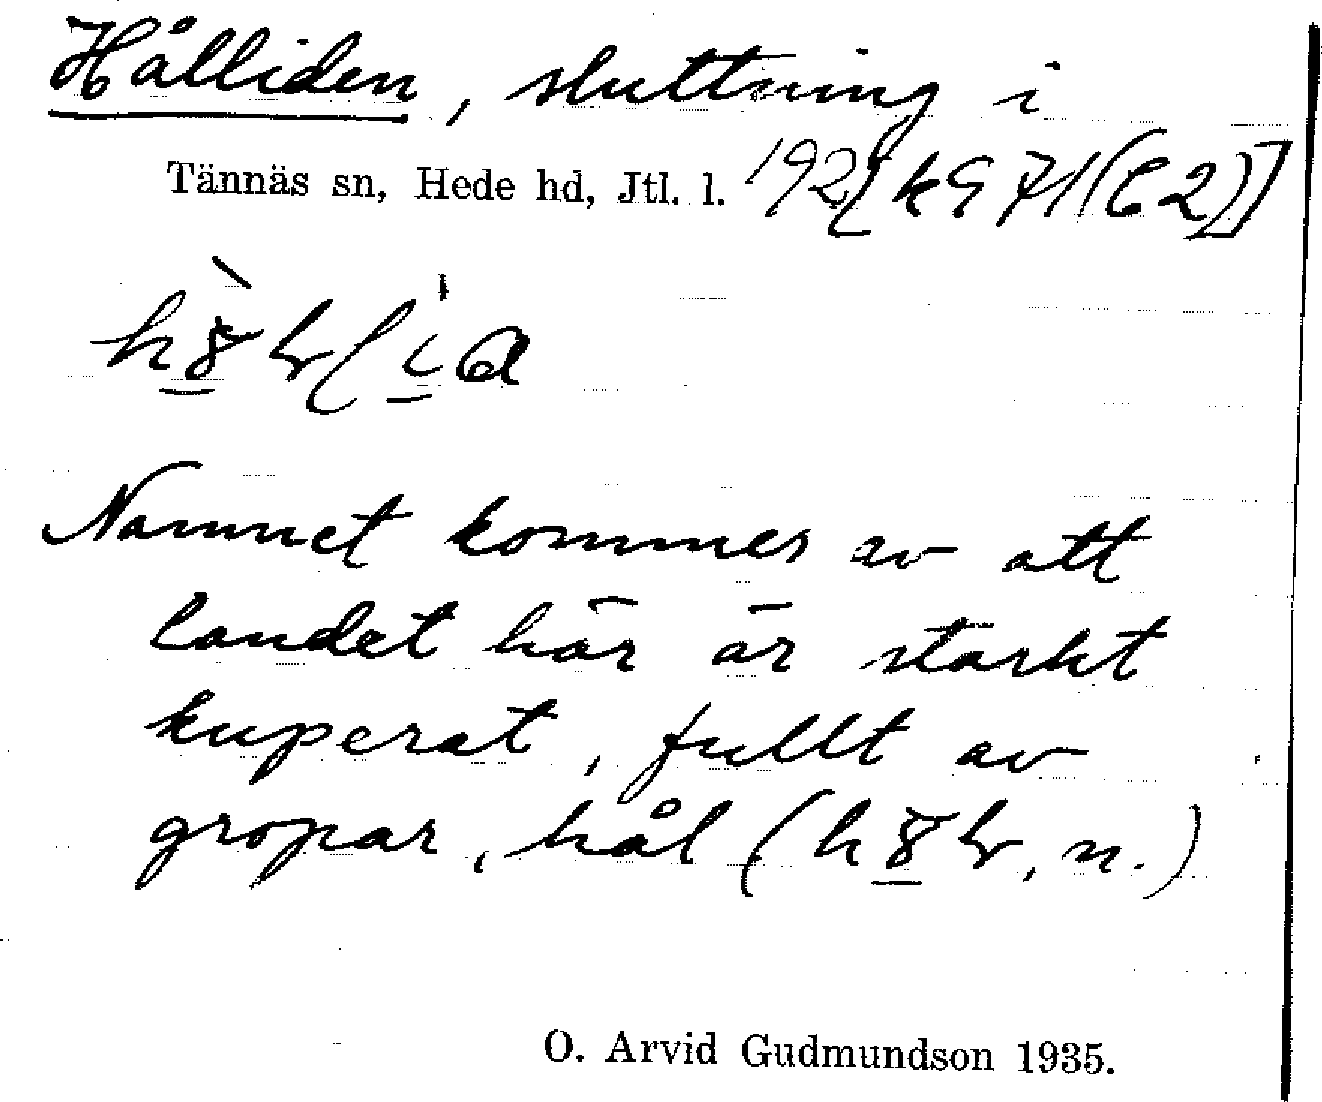 Hålliden, sluttning i
Tännäs sn, Hede hd, Jtl. l. 192
Namnet kommer av att
landet här är starkt
kuperat, fullt av
gropar, hål (
n.)
O. Arvid Gudmundson 1935.